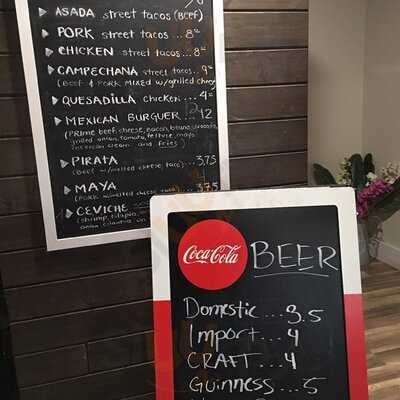 ASADA street tacos (Beef)
PORK street tacos...8
CHICKEN street tacos...8
CAMPECHANA street tacos..9
(Beef & PORK MIXED w/grilled
QUESADILLA chicken...4
MEXICAN BURGUER....12
(Prime beef, cheese, bacon,
grilled onion, tomato, mayo
cream and fries)
PIRATA
(Beef w/melted cheese, taco)...3.75
MAYA
melted cheese 3.75
CEVICHE
(shrimp, tilapia,
onion, cilantro
Coca-Cola BEER
Domestic...3.5
Import...4
CRAFT...4
Guinness...5